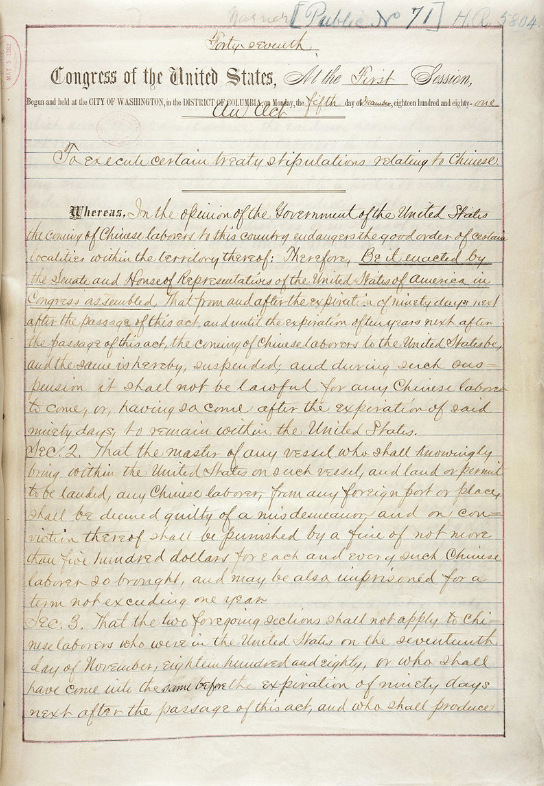 [Public, No 71] H.R. 5804.
Forty-seventh
Congress of the United States, At the First Session,
Begun and held at the CITY OF WASHINGTON, in the DISTRICT OF COLUMBIA, on Monday, the fifth day of December, eighteen hundred and eighty-one
An Act
To execute certain treaty stipulations relating to Chinese
Whereas, In the opinion of the Government of the United States
the coming of Chinese laborers to this country endangers the good order of certain
localities within the territory thereof: Therefore, Be it enacted by
the Senate and House of Representatives of the United States of America in
Congress assembled, That from and after the expiration of ninety days next
after the passage of this act, and until the expiration of ten years next after
the passage of this act, the coming of Chinese laborers to the United States be,
and the same is hereby, suspended; and during such sus=
pension it shall not be lawful for any Chinese laborer
to come, or, having so come after the expiration of said
ninety days, to remain within the United States.
Sec. 2. That the master of any vessel who shall knowingly
bring within the United States on such vessel, and land or permit
to be landed, any Chinese laborer, from any foreign port or place,
shall be deemed guilty of a misdemeanor, and on con=
viction thereof shall be punished by a fine of not more
than five hundred dollars for each and every such Chinese
laborer so brought, and may be also imprisoned for a
term not exceeding one year.
Sec. 3. That the two foregoing sections shall not apply to Chi-
nese laborers who were in the United States on the seventeenth
day of November, eighteen hundred and eighty, or who shall
have come into the same before the expiration of ninety days
next after the passage of this act, and who shall produce